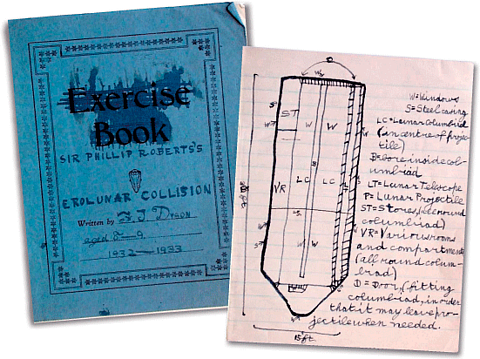 Exercise
Book
SIR PHILLIP ROBERTS'S
EROLUNAR COLLISION
Written by F. J. Dyson
aged 8-9
1932-1933
W=Windows
S=Steel casing
LC=Lunar Columbiad
(in centre of projec-
tile)
B=bore inside col-
umbiad
LT=Lunar Telescope
P=Lunar Projectile
ST=Stores, (all round
columbiad)
VR=Various rooms
and compartments
(all round colum-
biad)
D=Door, (fitting
columbiad, in order
that it may leave pro-
jectile when needed.
ST
W
W
S
VR
LC
LC
W
S
W
W
15ft